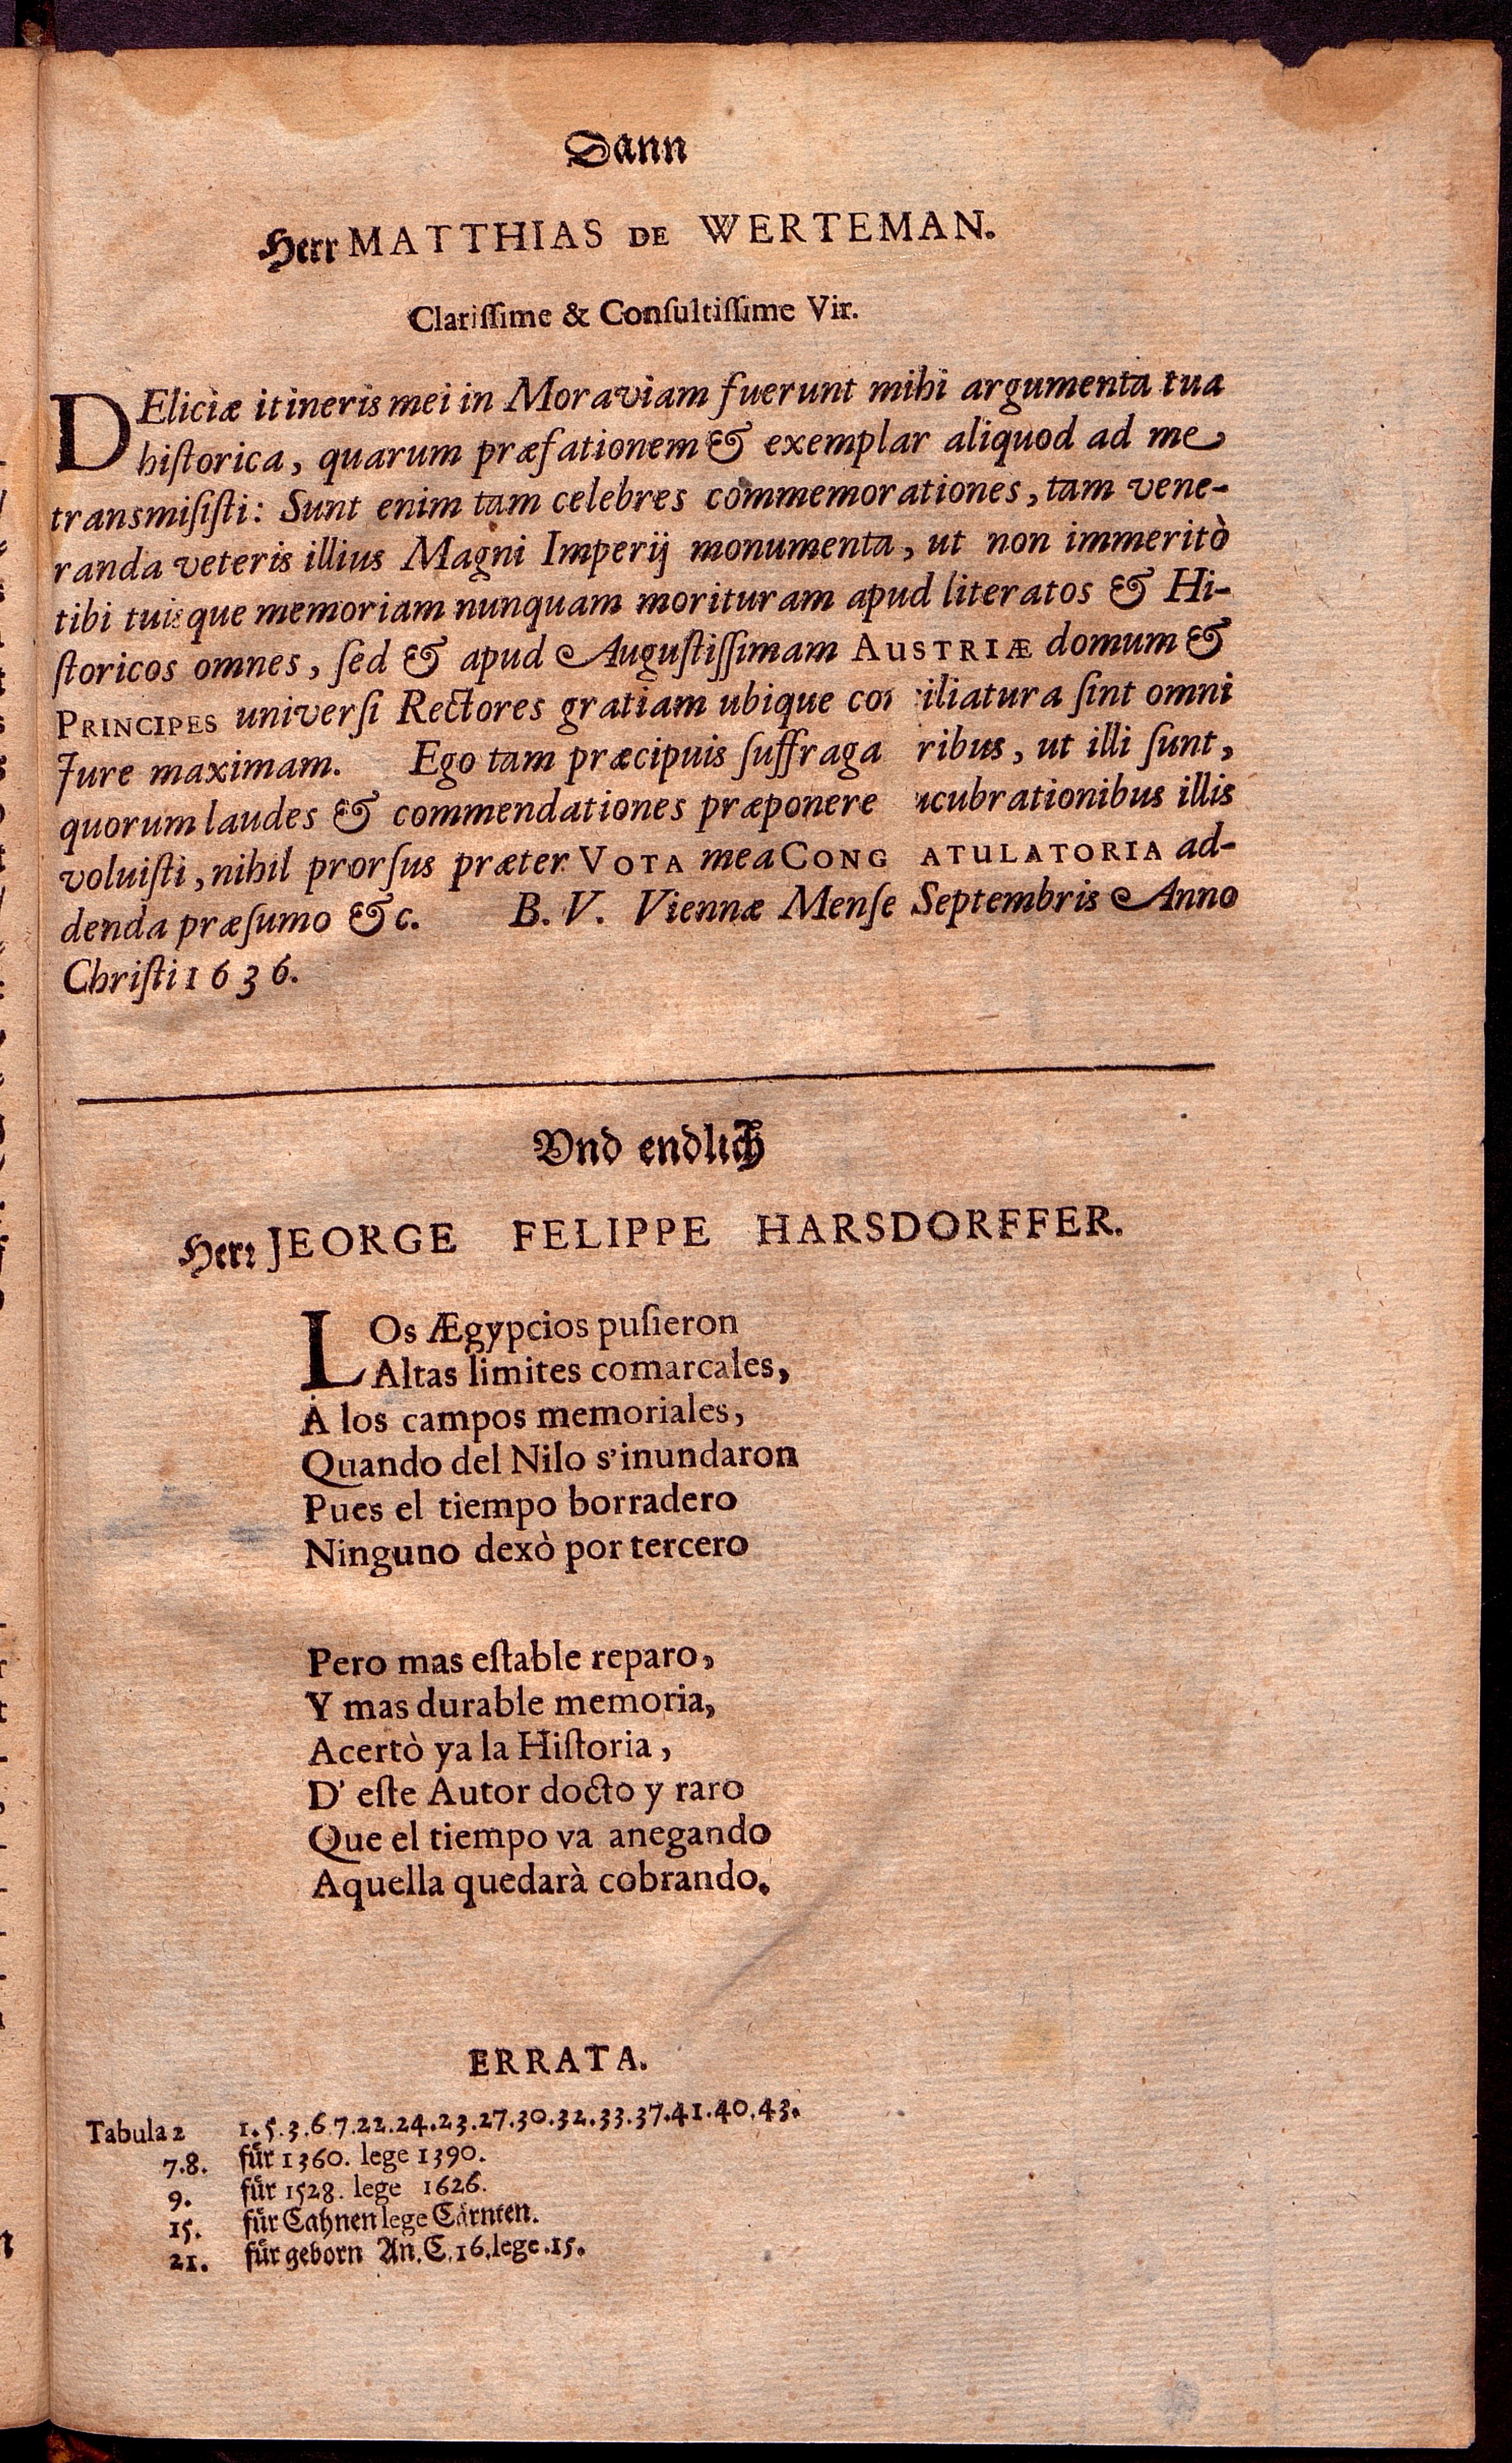 Dann
Herr MATTHIAS DE WERTEMAN.
Clariſſime & Conſultiſſime Vir.
DEliciæ itineris mei in Moraviam fuerunt mihi argumenta tua
hiſtorica, quarum præfationem & exemplar aliquod ad me
transmiſiſti: Sunt enim tam celebres commemorationes, tam vene-
randa veteris illius Magni Imperij monumenta, ut non immeritò
tibi tuisque memoriam nunquam morituram apud literatos & Hi-
ſtoricos omnes, ſed & apud Auguſtiſſimam AUSTRIÆ domum &
PRINCIPES univerſi Rectores gratiam ubique co iliatura ſint omni
Jure maximam. Ego tam præcipuis ſuffraga ribus, ut illi ſunt,
quorum laudes & commendationes præponere ucubrationibus illis
voluiſti, nihil prorſus præter VOTA mea CONG ATULATORIA ad-
denda præſumo &c. B. V. Viennæ Menſe Septembris Anno
Chriſti 1636.
Vnd endlich
Herr JEORGE FELIPPE HARSDORFFER.
LOs Ægypcios puſieron
Altas limites comarcales,
A los campos memoriales,
Quando del Nilo s'inundaron
Pues el tiempo borradero
Ninguno dexò por tercero
Pero mas eſtable reparo,
Y mas durable memoria,
Acertò ya la Hiſtoria,
D' eſte Autor docto y raro
Que el tiempo va anegando
Aquella quedarà cobrando.
ERRATA.
Tabula 2 1.5.3.6.7.22.24.23.27.30.32.33.37.41.40.43.
7.8. für 1360. lege 1390.
9. für 1528. lege 1626.
15. für Cahnen lege Cärnten.
21. für geborn An. C. 16. lege. 15.